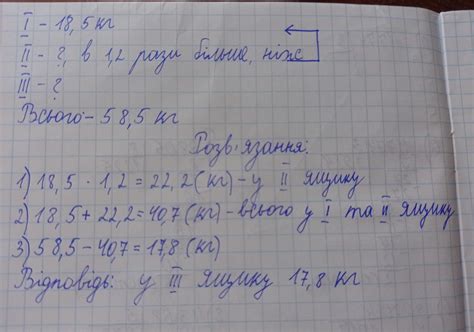 I - 18,5 кг
II - ?, в 1,2 рази більша, ніж
III - ?
Всього - 58,5 кг
Розв'язання:
1) 18,5 · 1,2 = 22,2 (кг) - у II ящику
2) 18,5 + 22,2 = 40,7 (кг) - всього у I та II ящику
3) 58,5 - 40,7 = 17,8 (кг)
Відповідь: у III ящику 17,8 кг